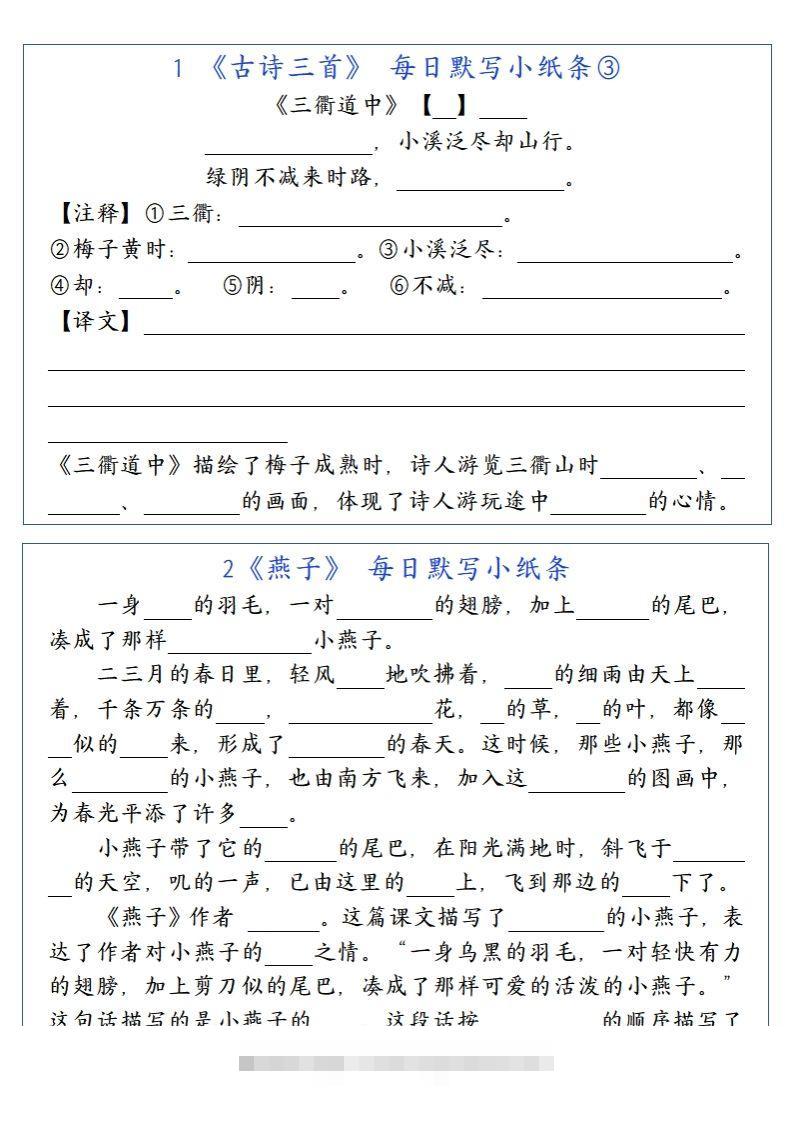 1 《古诗三首》 每日默写小纸条③
《三衢道中》【__】____
______________，小溪泛尽却山行。
绿阴不减来时路，______________。
【注释】①三衢：______________________。
②梅子黄时：______________。③小溪泛尽：__________________。
④却：____。 ⑤阴：____。 ⑥不减：____________________。
【译文】__________________________________________________
__________________________________________________________
__________________________________________________________
____________________
《三衢道中》描绘了梅子成熟时，诗人游览三衢山时________、__
______、________的画面，体现了诗人游玩途中________的心情。
2《燕子》 每日默写小纸条
一身____的羽毛，一对________的翅膀，加上______的尾巴，
凑成了那样____________小燕子。
二三月的春日里，轻风____地吹拂着，____的细雨由天上____
着，千条万条的____，____________花，__的草，__的叶，都像__
__似的____来，形成了________的春天。这时候，那些小燕子，那
么________的小燕子，也由南方飞来，加入这________的图画中，
为春光平添了许多____。
小燕子带了它的______的尾巴，在阳光满地时，斜飞于______
__的天空，叽的一声，已由这里的____上，飞到那边的____下了。
《燕子》作者 ______。这篇课文描写了________的小燕子，表
达了作者对小燕子的____之情。“一身乌黑的羽毛，一对轻快有力
的翅膀，加上剪刀似的尾巴，凑成了那样可爱的活泼的小燕子。”
这句话描写的是小燕子的____，这段话按__________的顺序描写了